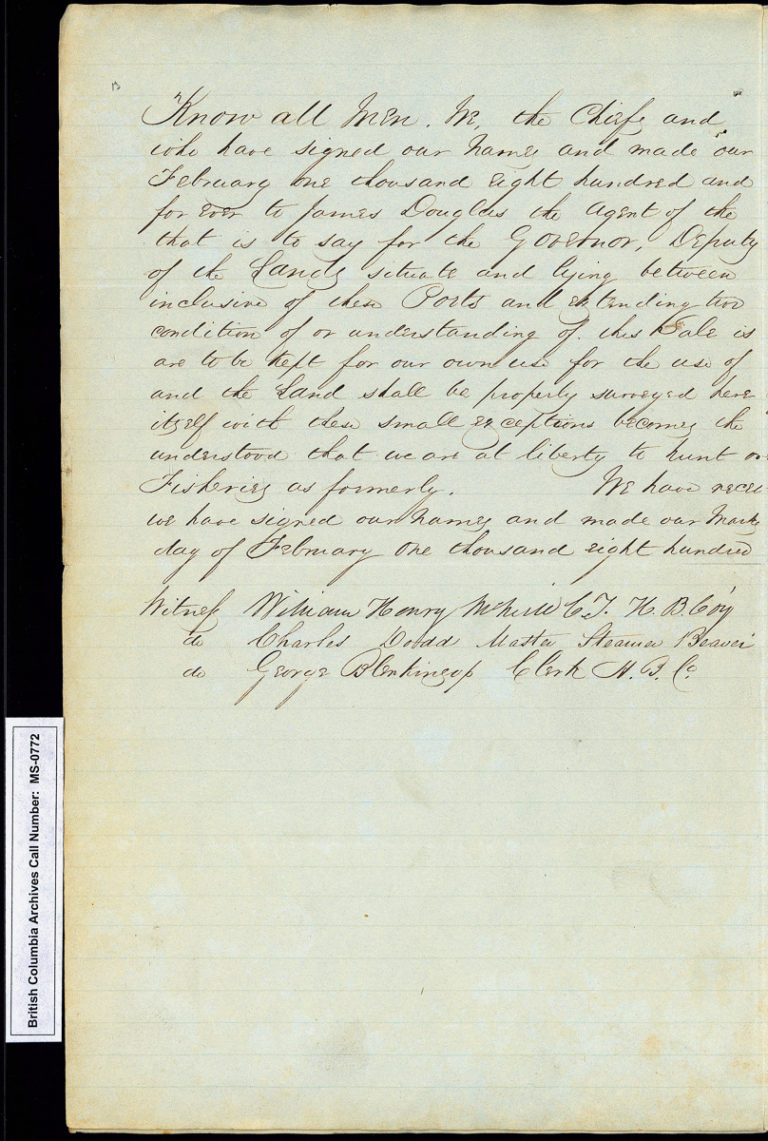 Know all Men. We, the Chiefs and
who have signed our Names and made our
February one thousand eight hundred and
for ever to James Douglas the Agent of the
that is to say for the Governor, Deputy
of the Lands situate and lying between
inclusive of these Ports and extending two
condition of or understanding of this Sale is
are to be kept for our own use for the use of
and the Land shall be properly surveyed here
itself with these small exceptions becomes the
understood that we are at liberty to hunt ov
Fisheries as formerly. We have recei
we have signed our Names and made our Marks
day of February one thousand eight hundred
Witness William Henry McNeill C.T. H.B.Coy
do Charles Dodd Master Steamer Beaver
do George Blenkinsop Clerk H.B.Co
British Columbia Archives Call Number: MS-0772